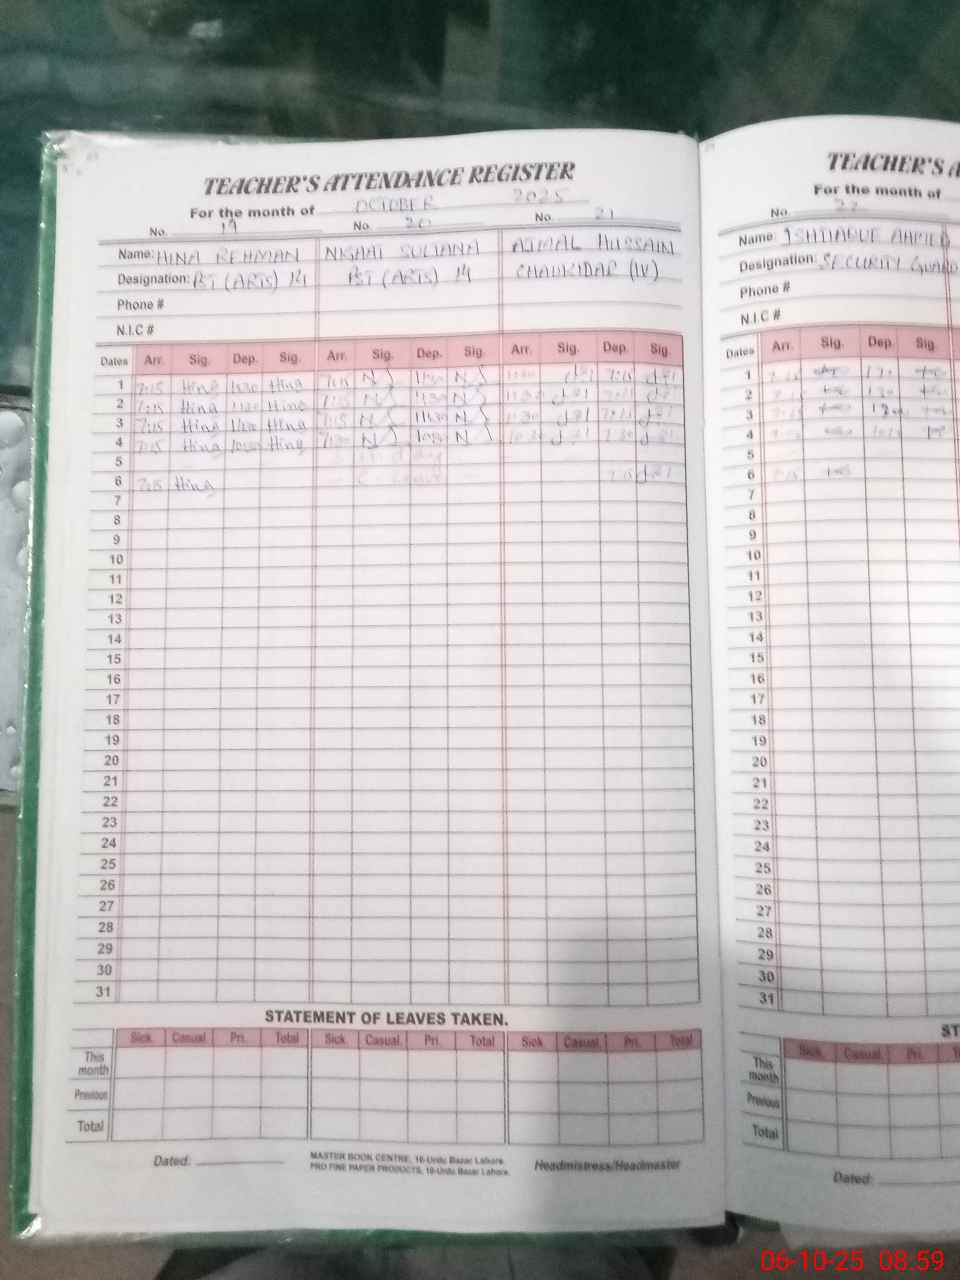 TEACHER'S ATTENDANCE REGISTER
For the month of OCTOBER 2025
No. 19 No. 20 No. 21
Name: HINA REHMAN NIGHAT SULTANA AJMAL HUSSAIN
Designation: PST (ARTS) 14 PST (ARTS) 14 CHAUKIDAR (IV)
Phone #
N.I.C #
Dates Arr. Sig. Dep. Sig. Arr. Sig. Dep. Sig. Arr. Sig. Dep. Sig.
1 7:15 Hina 11:30 Hina 7:15 11:30
2 7:15 Hina 11:30 Hina 7:15 11:30 11:30
3 7:15 Hina 11:30 Hina 7:15 11:30 11:30
4 7:15 Hina 10:30 Hina 7:30 10:30
5 Sunday
6 7:15 Hina C-Leave
7
8
9
10
11
12
13
14
15
16
17
18
19
20
21
22
23
24
25
26
27
28
29
30
31
STATEMENT OF LEAVES TAKEN.
Sick. Casual. Pri. Total Sick. Casual. Pri. Total Sick Casual. Pri. Total
This month
Previous
Total
Dated:
MASTER BOOK CENTRE, 16-Urdu Bazar Lahore.
PRO FINE PAPER PRODUCTS, 16-Urdu Bazar Lahore.
Headmistress/Headmaster
TEACHER'S A
For the month of
No. 22
Name: ISHTIAQUE AHMED
Designation: SECURITY GUARD
Phone #
N.I.C #
Dates Arr. Sig. Dep. Sig.
1 1:30
2 1:30
3
4
5
6
7
8
9
10
11
12
13
14
15
16
17
18
19
20
21
22
23
24
25
26
27
28
29
30
31
ST
Sick. Casual. Pri.
This month
Previous
Total
Dated:
06-10-25 08:59